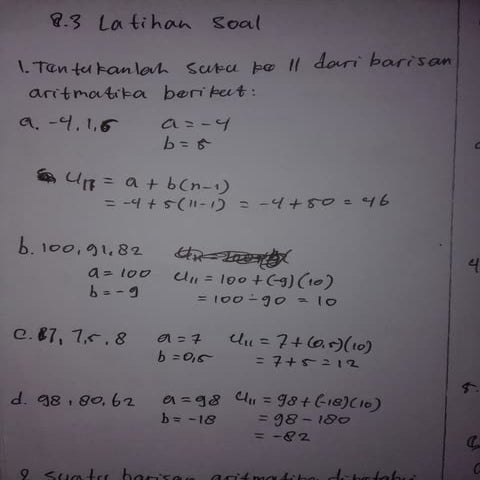 8.3 Latihan Soal
1. Tentukanlah suku ke 11 dari barisan
aritmatika berikut:
a. -4, 1, 6 a = -4
b = 5
U11 = a + b(n-1)
= -4 + 5(11-1) = -4 + 50 = 46
b. 100, 91, 82
a = 100 U11 = 100 + (-9)(10)
b = -9 = 100 - 90 = 10
c. 7, 7,5, 8 a = 7 U11 = 7 + (0,5)(10)
b = 0,5 = 7 + 5 = 12
d. 98, 80, 62 a = 98 U11 = 98 + (-18)(10)
b = -18 = 98 - 180
= -82
2. suatu barisan aritmatika diketahui